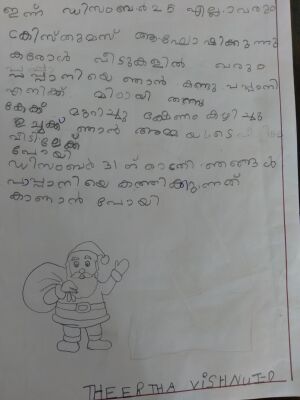 ഇന്ന് ഡിസംബർ 25 എല്ലാവരും
ക്രിസ്തുമസ് ആഘോഷിക്കുന്നു
കരോൾ വീടുകളിൽ വരും
പപ്പാനിയെ ഞാൻ കണ്ടു പപ്പാനി
എനിക്ക് മിഠായി തന്നു
കേക്ക് മുറിച്ചു ഭക്ഷണം കഴിച്ചു
ഉച്ചക്ക് ഞാൻ അമ്മയുടെ
വീട്ടിലേക്ക്
പോയി
ഡിസംബർ 31 ന് രാത്രി ഞങ്ങൾ
പാപ്പാനിയെ കത്തിക്കുന്നത്
കാണാൻ പോയി
THEERTHA VISHNU T-D